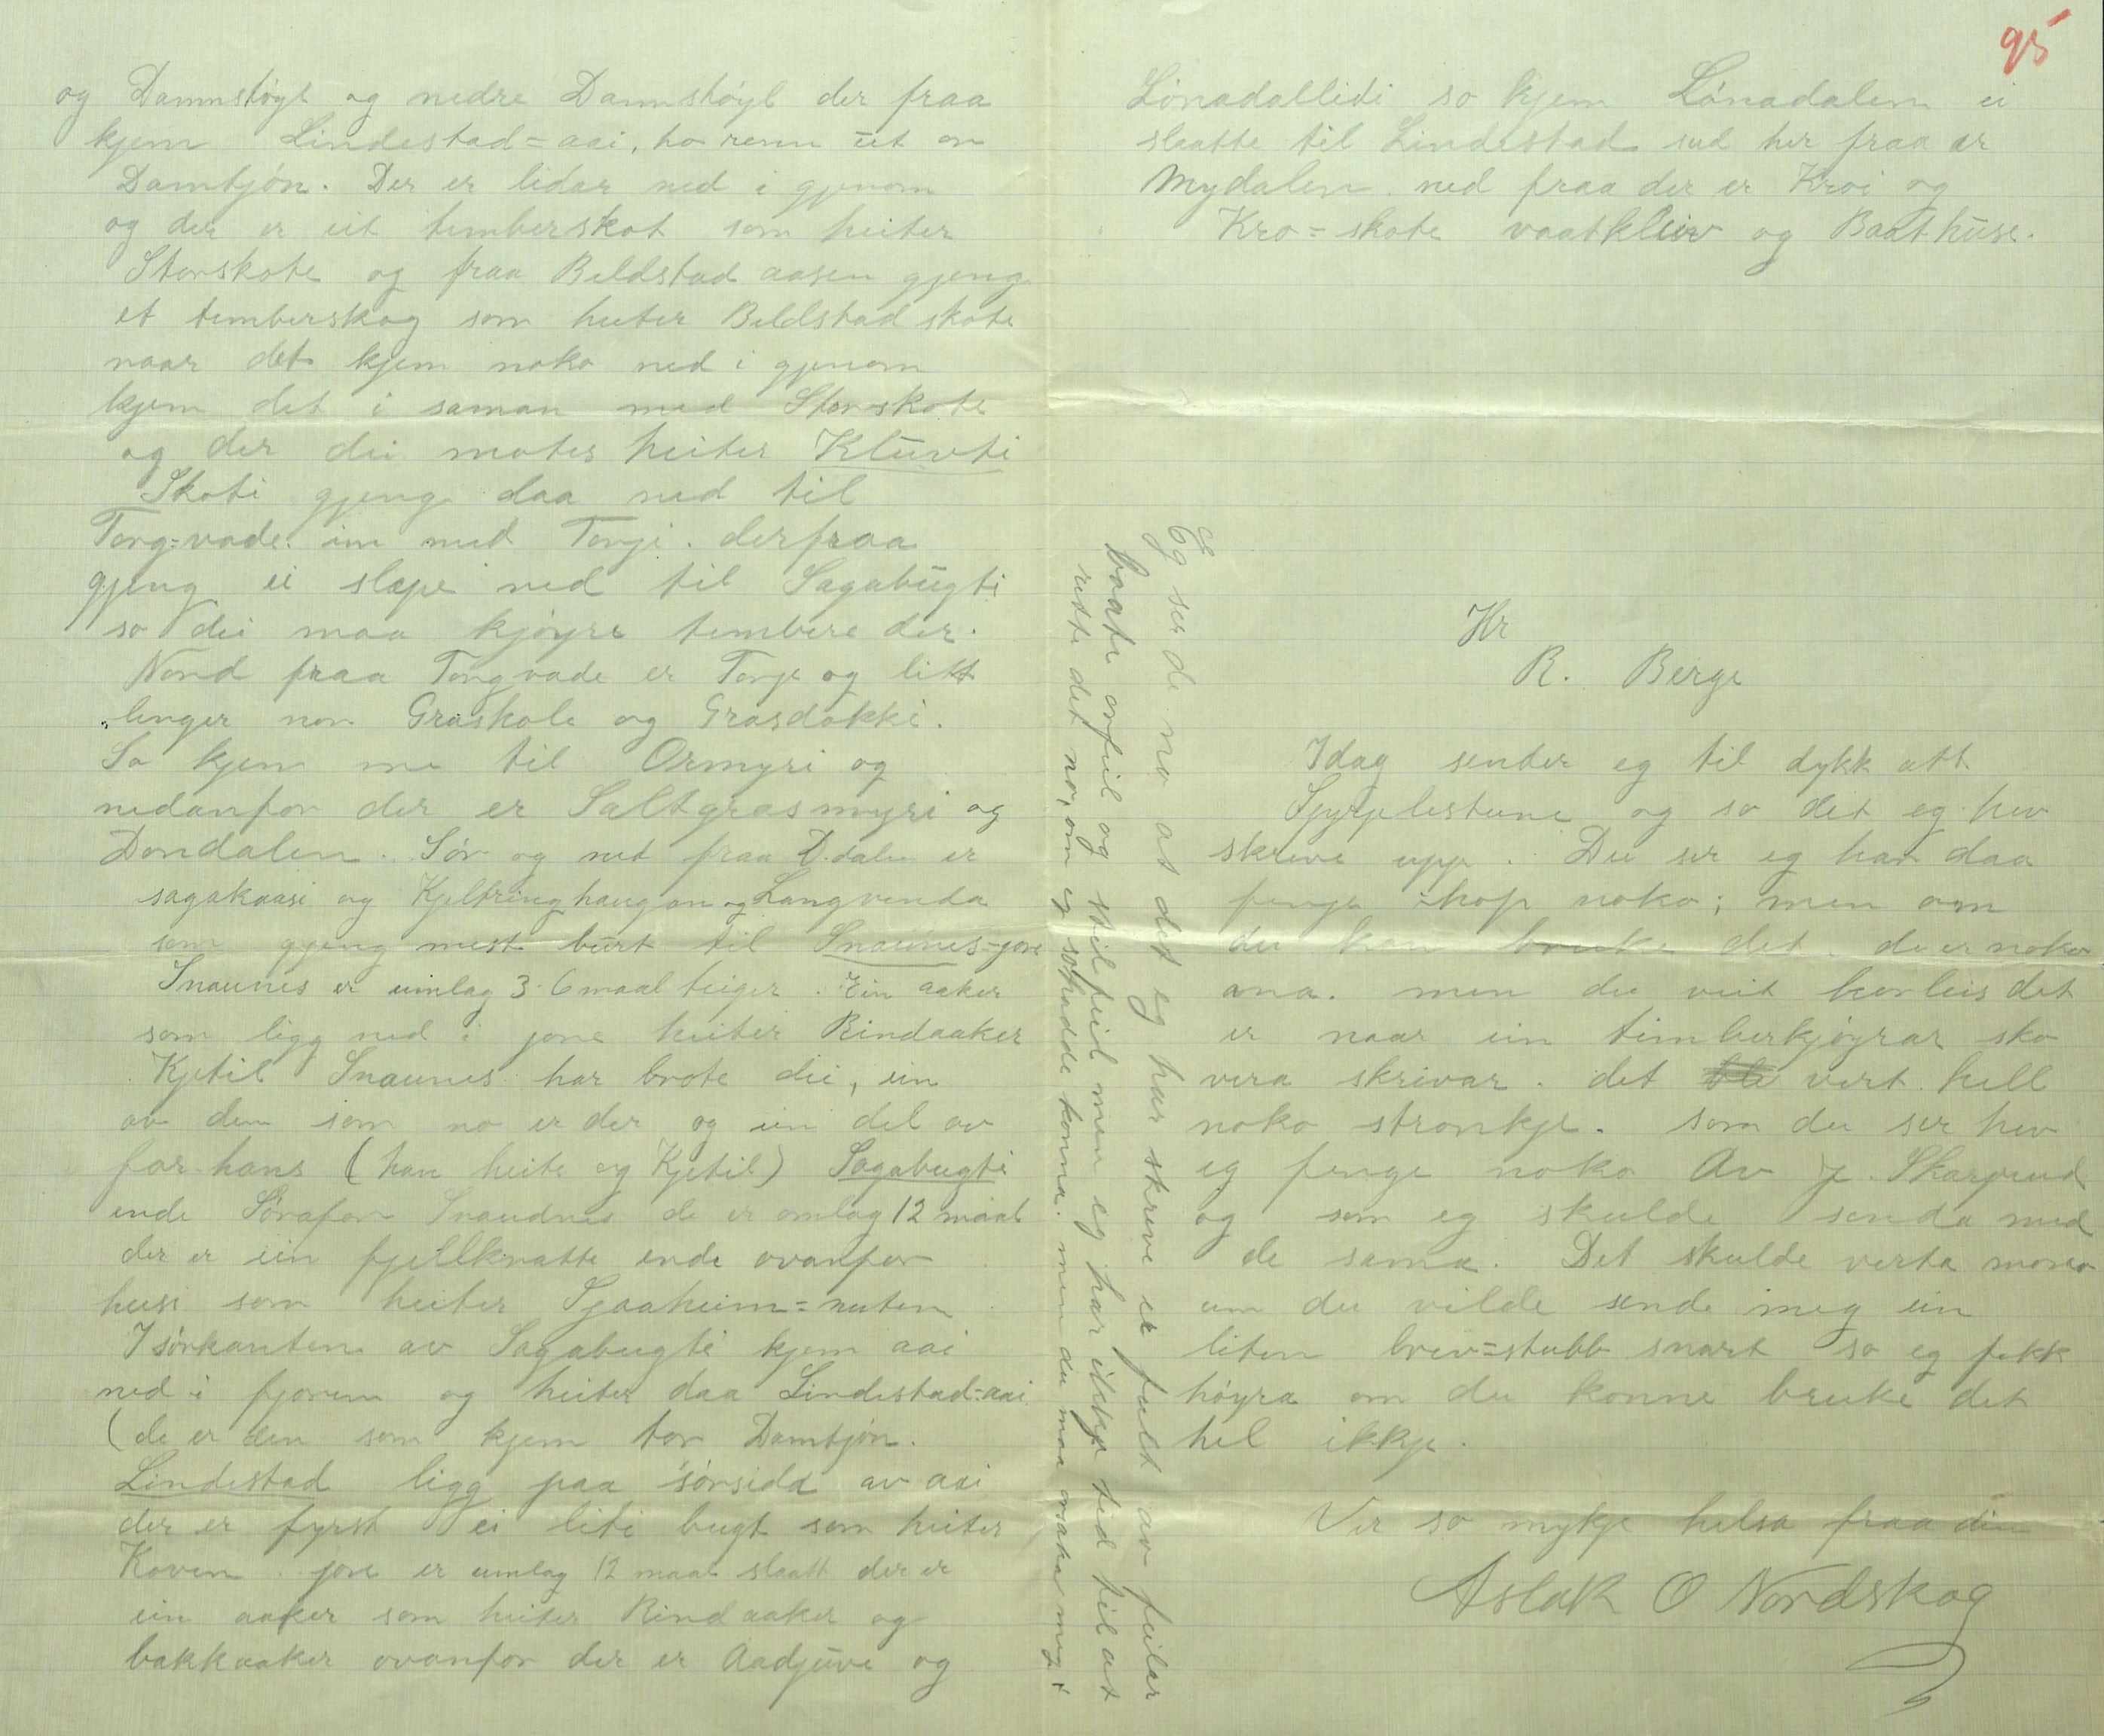 og Damnstøyl og nedre Damnstøyl der fraa
kjem Lindestad=aai, ho renn ut or
Damtjøn. Der er lidar ned i gjenom
og der er eit temberskot som heiter
Storskote og fraa Beldstad aasen gjeng
et temberskog som heiter Beldstad skote
naar det kjem noko ned i gjenom
kjem det i saman med Storskote
og der dei møtes heiter Kluvti
Skoti gjeng daa ned til
Torg=vade inn med Torje. derfraa
gjeng ei slæpe ned til Sagabugti
so dei maa kjøyre tembere der.
Nord fraa Torgvade er Torje og litt
lenger nor Graskole og Grasdokki.
So kjem me til Ormyri og
nedanfor der er Saltgrasmyri og
Dondalen. Sør og net fraa D.dalen er
sagakaasi og Kjeltringhaugan og Langvenda
som gjeng mest burt til Snaunes=jore
Snaunes er umlag 3-6 maal teiger. Ein aaker
som ligg ned i jore heiter Rindaaker
Kjetil Snaunes har brote dei, ein
av den som no er der og ein del av
far hans (han heite og Kjetil) Sagabugti
ende Sørafor Snaudnes de er omlag 12 maal
der er ein fjellknatte ende ovanfor
husi som heiter Sjaaheim=nuten
I sørkanten av Sagabugti kjem aai
ned i fjoren og heiter daa Lindestad=aai
(de er den som kjem tor Damtjøn.
Lindestad ligg paa sørsida av aai
der er fyrst ei liti bugt som heiter
Koven. jore er umlag 12 maal slaatt der er
ein aaker som heiter Rindaaker og
bakkaaker ovanfor der er Aadjuve og
95
Lønadallidi so kjem Lønadalen ei
slaatte til Lindestad sud her fraa er
Mydalen ned fraa der er Kroi og
Kro=skote vaatkleiv og Baathuse.
Eg ser de no at det eg har skreve er fult av feilar
baate orfeil og stilfeil men eg har ikkje tid til at
rette det no, om eg so hadde konna. men du maa orsaka meg.
Hr
R. Berge
Idag sender eg til dykk att
Spyrjelistune og so det eg hev
skreve upp. Du ser eg har daa
fenge ihop noko; men om
du kan bruke det. de er noko
ana. men du veit korleis det
er naar ein timberkjøyrar sko
vera skrivar. det ble vert hell
noko stronkje. som du ser hev
eg fenge noko Av J. Skarprud
og som eg skulde senda med
de sama. Det skulde verta moro
um du vilde sende meg ein
liten brev=stubb snart so eg fekk
høyra om du konne bruke det
hel ikkje.
Ver so mykje helsa fraa din
Aslak O Nordskog